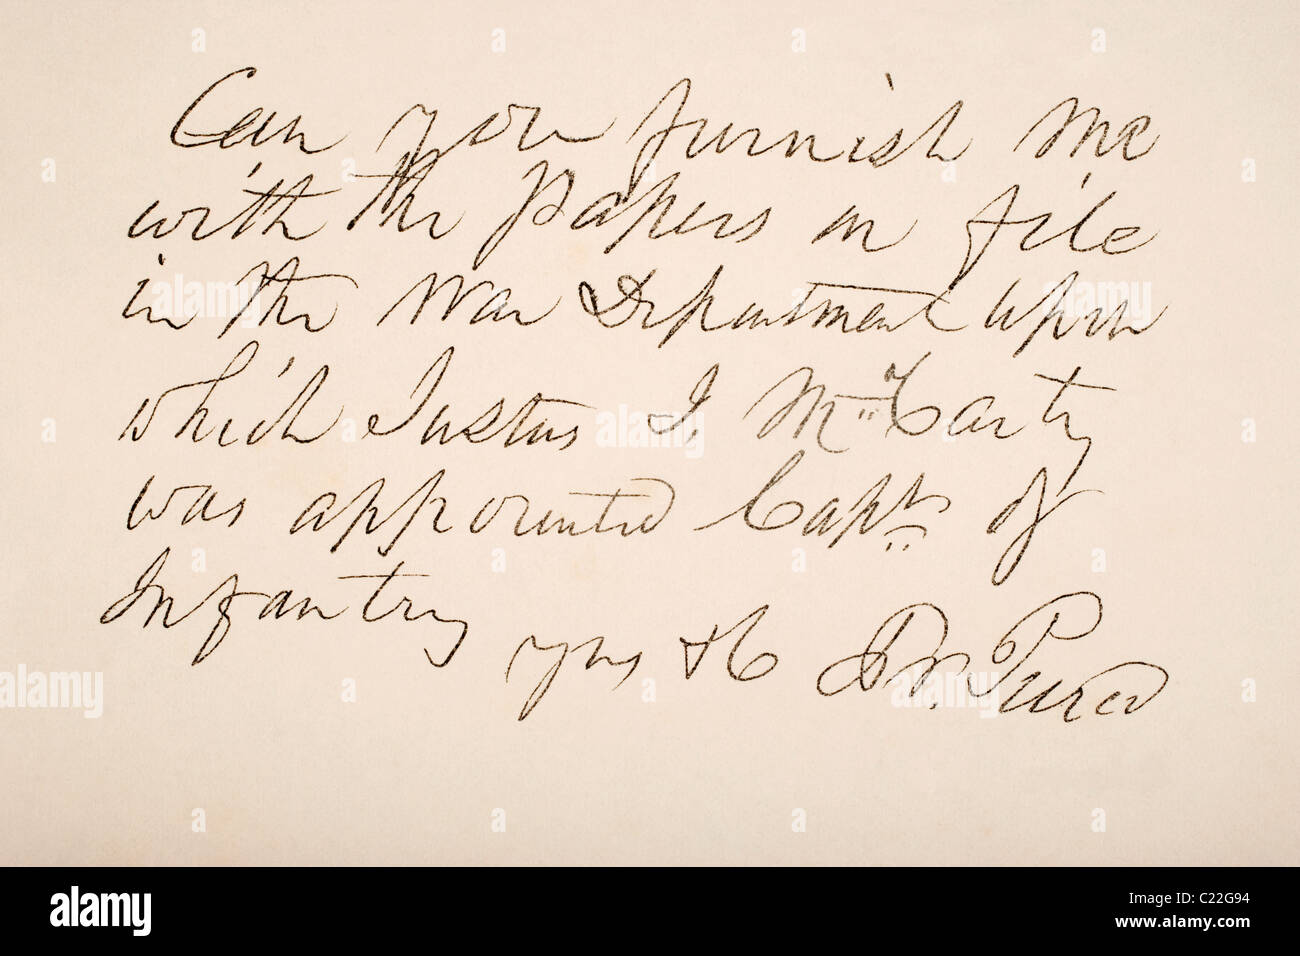 Can you furnish me
with the papers on file
in the War Department upon
which Justus I. McCarty
was appointed Capt. of
Infantry
yrs &c F. N. Pierce
alamy
Image ID: C22G94
www.alamy.com